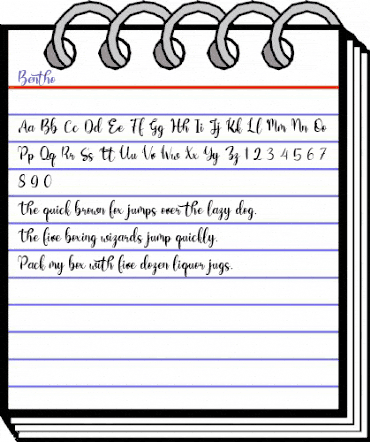 Bentho
Aa Bb Cc Dd Ee Ff Gg Hh Ii Jj Kk Ll Mm Nn Oo
Pp Qq Rr Ss Tt Uu Vv Ww Xx Yy Zz 1 2 3 4 5 6 7
8 9 0
The quick brown fox jumps over the lazy dog.
The five boxing wizards jump quickly.
Pack my box with five dozen liquor jugs.